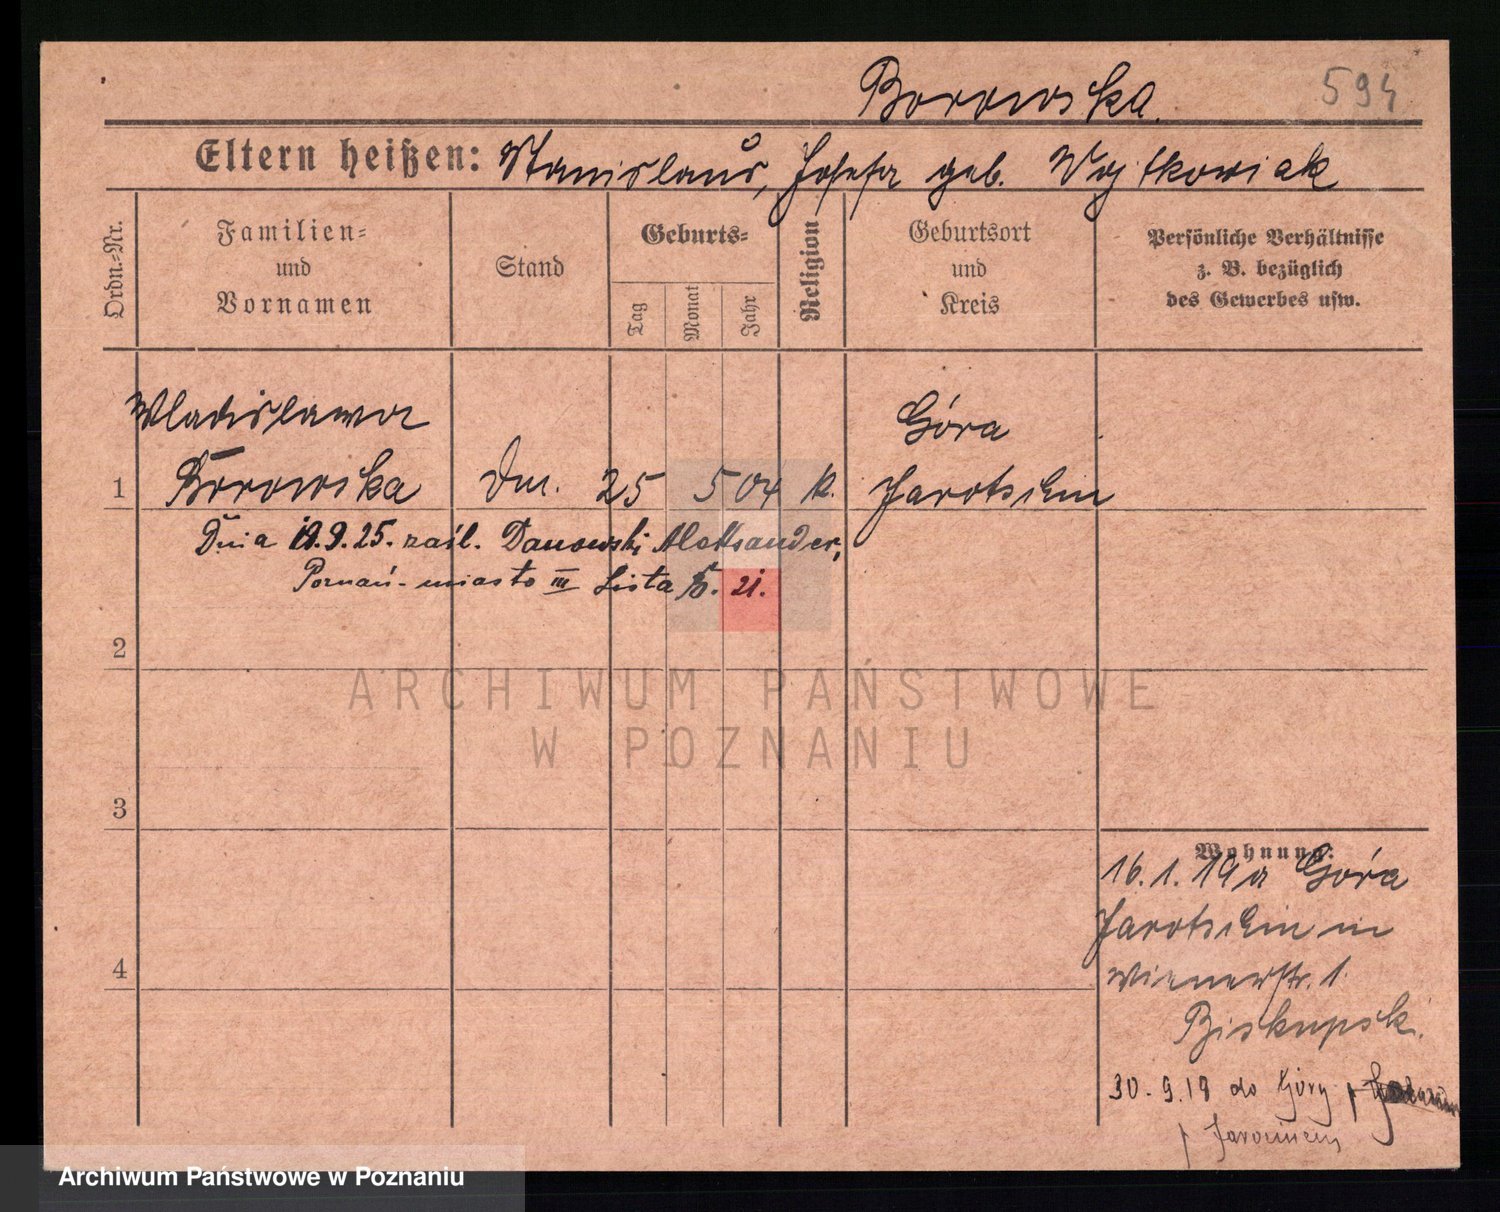 Borowska. 594
Eltern heißen: Stanislaus, Josefa geb. Wojtkowiak
Ordn.-Nr.
Familien-
und
Vornamen
Stand
Geburts-
Tag
Monat
Jahr
Religion
Geburtsort
und
Kreis
Persönliche Verhältnisse
z. B. bezüglich
des Gewerbes usw.
Wladislawa Góra
1 Borowska Dm. 25 5 04 k. Jarotschin
Dnia 19.9.25. zaśl. Danowski Aleksander,
Poznań-miasto III Lista 21.
2
ARCHIWUM PAŃSTWOWE
W POZNANIU
3
Wohnung:
16.1.19 a Góra
Jarotschin in
4 Wienerstr. 1.
Biskupski.
30.9.19 do Góry p
p Jarocinem
Archiwum Państwowe w Poznaniu